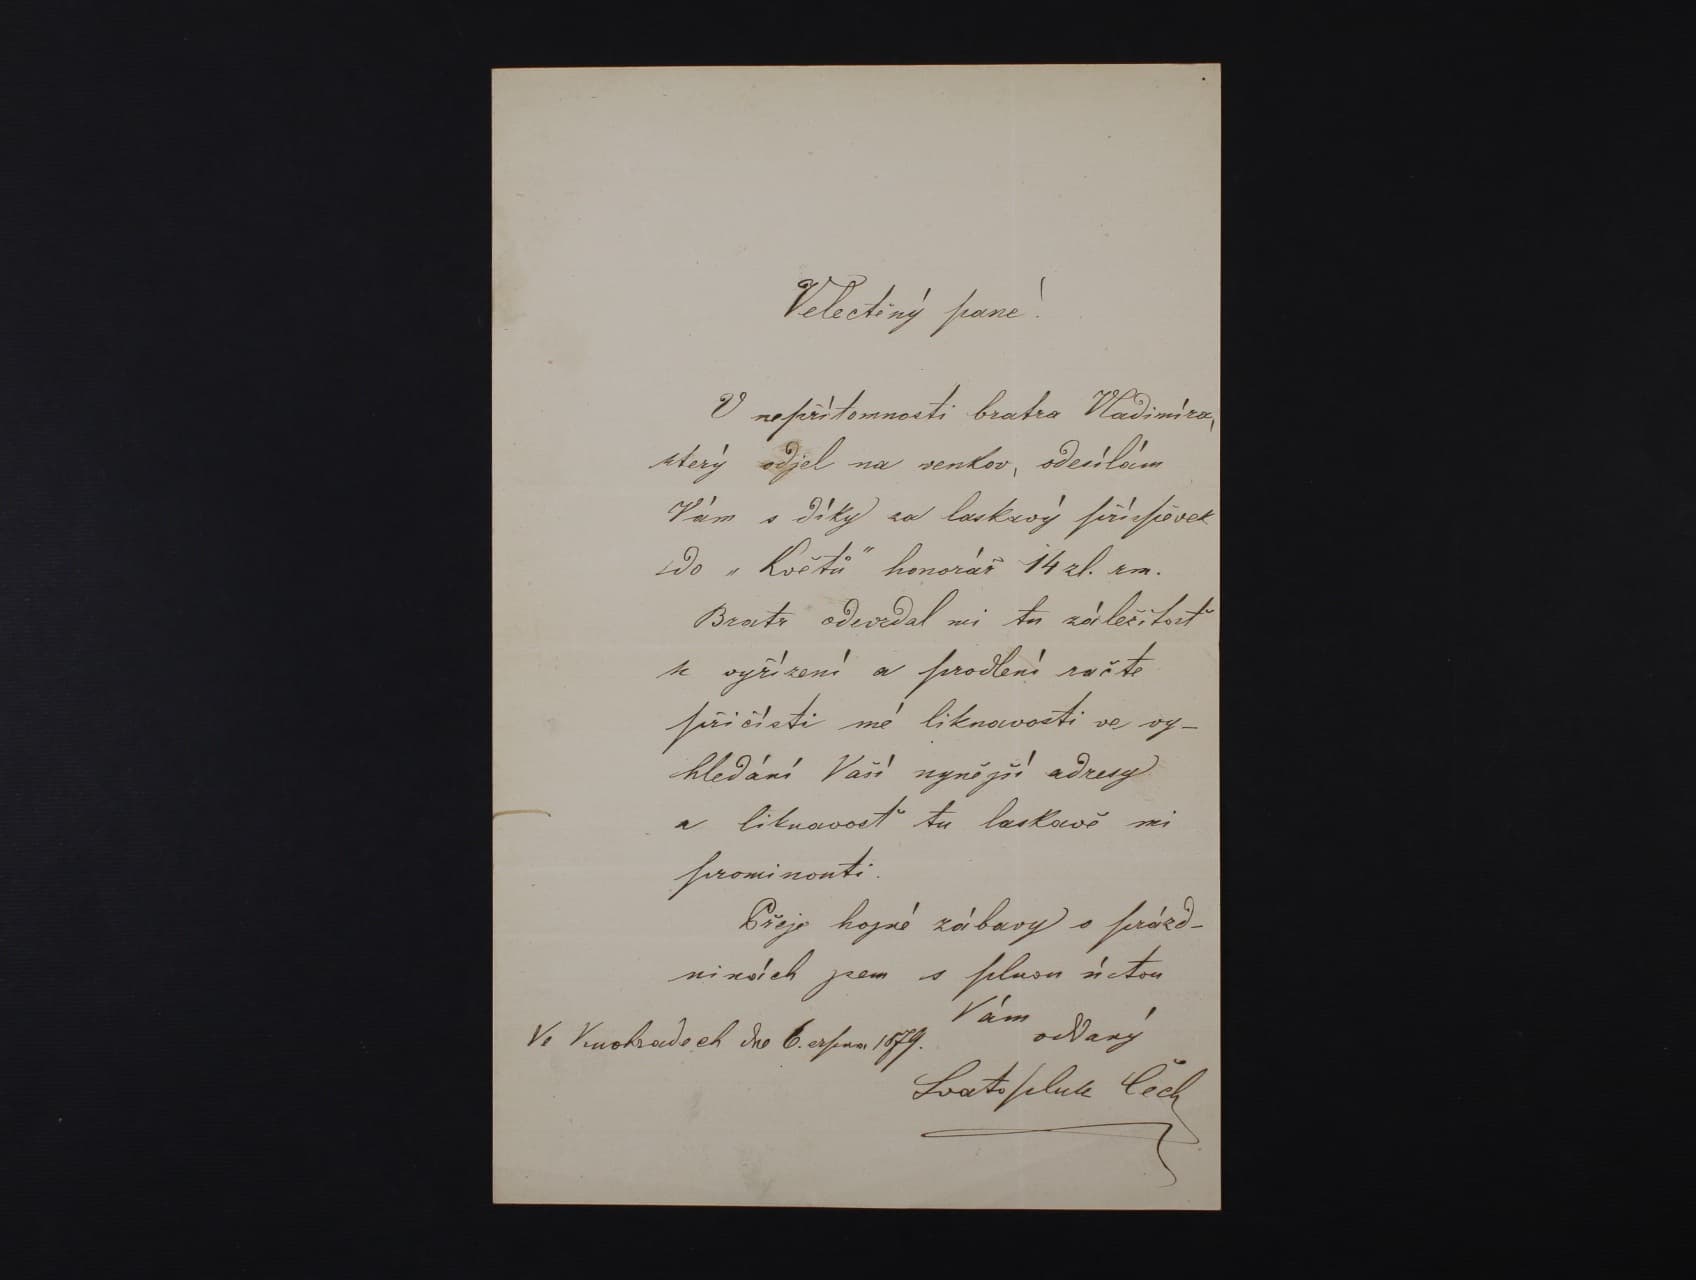 Velectěný pane!
V nepřítomnosti bratra Vladimíra,
který odjel na venkov, odesílám
Vám s díky za laskavý příspěvek
do „Květů" honorář 14 zl. rm.
Bratr odevzdal mi tu záležitosť
k vyřízení a prodlení račte
přičísti mé liknavosti ve vy-
hledání Vaší nynější adresy
a liknavosť tu laskavě mi
prominouti.
Přeje hojné zábavy o prázd-
ninách jsem s plnou úctou
Vám
oddaný
Ve Vinohradech dne 6. srpna 1879.
Svatopluk Čech